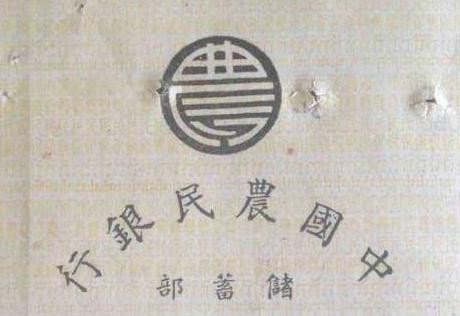 中國農民銀行
儲蓄部